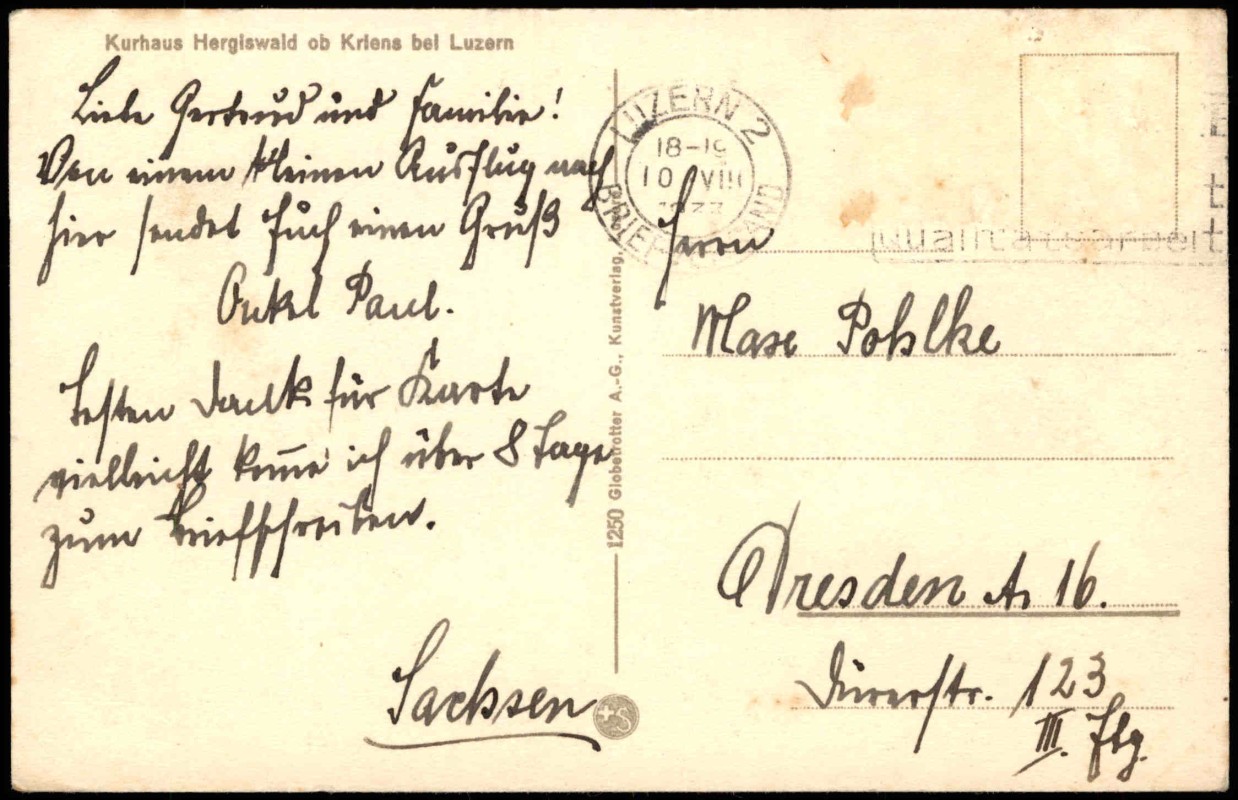 Kurhaus Hergiswald ob Kriens bei Luzern
Liebe Gertrud und Familie!
Von einem kleinen Ausflug nach
hier sendet Euch einen Gruß
Onkel Paul.
Besten Dank für Karte
vielleicht kom̄e ich über 8 Tage
zum Briefschreiben.
Sachsen
1250 Globetrotter A.-G., Kunstverlag,
LUZERN 2
18-19
10 VIII
BRIEFVERSAND
Qualitätsarbeit
Herrn
Max Pohlke
Dresden A. 16.
Dürerstr. 123
III. Etg.